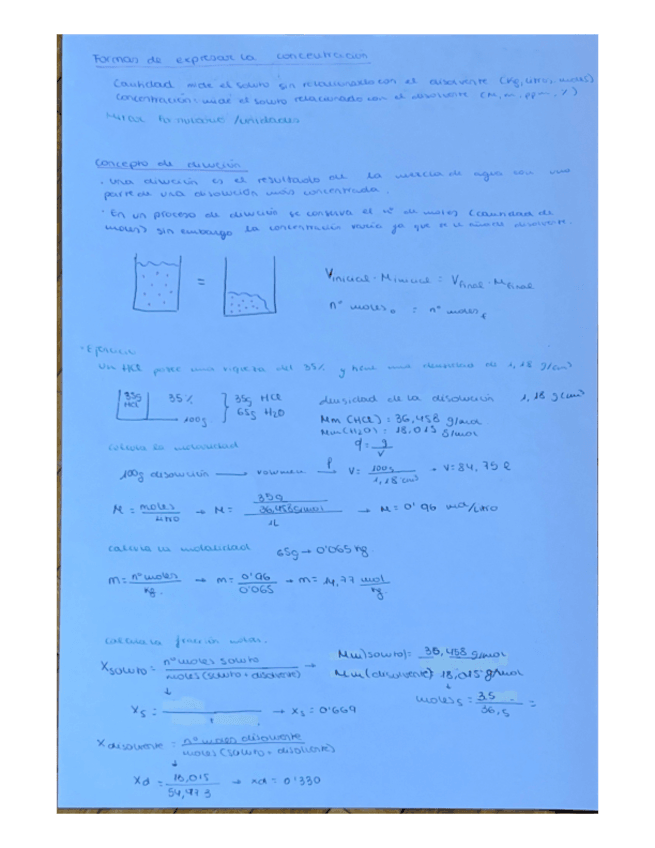 Formas de expresar la concentración
Cantidad mide el soluto sin relacionarlo con el disolvente (Kg, litro, moles)
Concentración: mide el soluto relacionado con el disolvente (M, m, ppm, %)
Concepto de dilución
· Una dilución es el resultado de la mezcla de agua con una
parte de una disolución más concentrada.
· En un proceso de dilución se conserva el nº de moles (cantidad de
moles) sin embargo la concentración varía ya que se le añade disolvente.
=
Vinicial · Minicial = Vfinal · Mfinal
nº moles₀ = nº molesf
· Ejercicio
Un HCl posee una riqueza del 35% y tiene una densidad de 1,18 g/cm³
35g HCl 35% } 35g HCl
65g H₂O
100g
densidad de la disolución 1,18 g/cm³
Mm (HCl) = 36,458 g/mol
Mm (H₂O) = 18,015 g/mol
calcula la molaridad
d = g/V
100g disolución → volumen →ρ V = 100g / 1,18 g/cm³ → V = 84,75 l
M = moles/litro → M = 35g / 36,458 g/mol / 1L → M = 0'96 mol/litro
calcula la molalidad 65g → 0'065 kg
m = nº moles / kg. → m = 0'96 / 0'065 → m = 14,77 mol/kg.
calcula la fracción molar.
Xsoluto = nº moles soluto / moles (soluto + disolvente) →
Mm (soluto) = 36,458 g/mol
Mm (disolvente) 18,015 g/mol
moles s = 35 / 36,5 =
Xs = → Xs = 0'669
Xdisolvente = nº moles disolvente / moles (soluto + disolvente)
Xd = 18,015 / 54,473 → Xd = 0'330